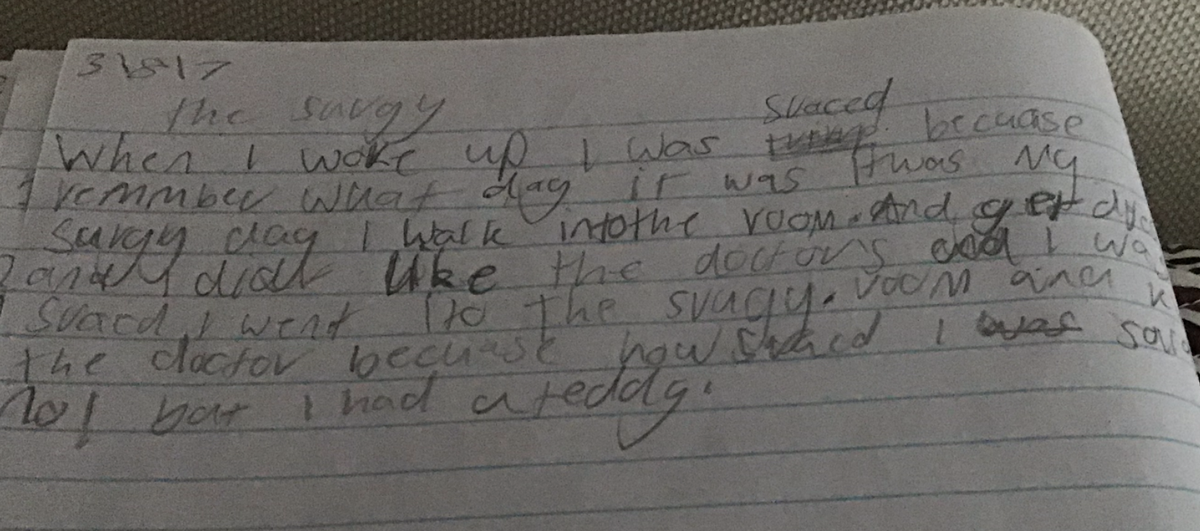 31817
the surgy
svaced
When I woke up I was becuase
I remmber what day it was Itwas My
surgy day I walk intothe room. And get
and I didt like the doctor's and I was
Svacd I went to the svugy. room and
the doctor becuase how svaced I was said
No! but I had a teddy.